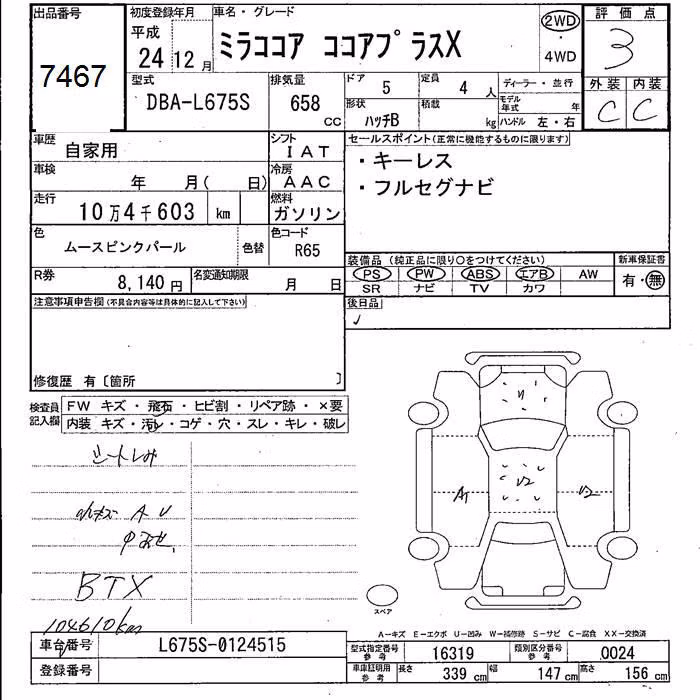 出品番号
7467
初度登録年月
平成
24年12月
車名・グレード
ミラココア ココアプラスX
2WD
・
4WD
評価点
3
型式
DBA-L675S
排気量
658
CC
ドア
5
定員
4人
形状
ハッチB
積載
kg
ディーラー・並行
モデル年式
年
ハンドル 左・右
外装
C
内装
C
車歴
自家用
シフト
IAT
車検
年 月( 日)
冷房
AAC
走行
10万4千603 km
燃料
ガソリン
色
ムースピンクパール
色替
色コード
R65
R券
8,140円
名変通知期限
月 日
セールスポイント(正常に機能するものに限ります)
・キーレス
・フルセグナビ
装備品 (純正品に限り○をつけてください)
PS PW ABS エアB AW
SR ナビ TV カワ
新車保証書
有・無
後日品
注意事項申告欄(不具合内容等は具体的に記入して下さい)
修復歴 有〔箇所 〕
検査員
記入欄
FW キズ・飛石・ヒビ割・リペア跡・×要
内装 キズ・汚レ・コゲ・穴・スレ・キレ・破レ
シートしみ
AU
BTX
104610km
A1
U2
U2
スペア
A-キズ E-エクボ U-凹み W-補修跡 S-サビ C-腐食 XX-交換済
車台番号
L675S-0124515
登録番号
型式指定番号
参考
16319
類別区分番号
参考
0024
車庫証明用
参考
長さ 339 cm
幅 147 cm
高さ 156 cm